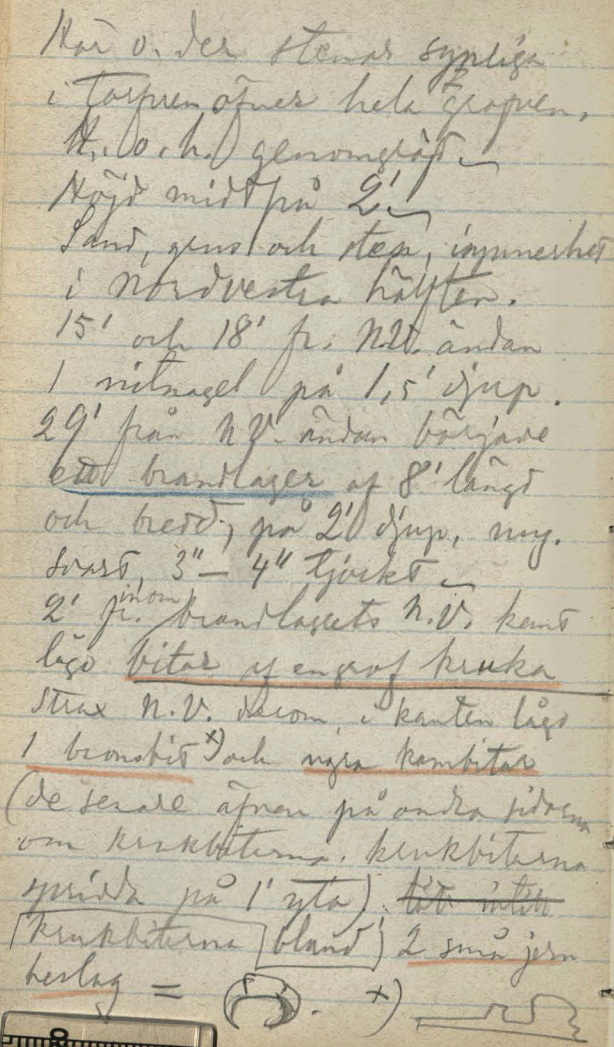 Här o. der stenar synliga
i torfven öfver hela grafven.
H. o. h. genomgräfd.
Höjd midt på 2'.
Sand, grus och sten, i synnerhet
i nordvestra hälften.
15' och 18' fr. N.V. ändan
1 nitnagel på 1,5' djup.
29' från N.V. ändan började
ett brandlager af 8' längd
och bredd, på 2' djup, myc.
svart, 3"– 4" tjockt
2' fr. inom brandlagrets N.V. kant
lågo bitar af en grof kruka
strax N.V. derom, i kanten låg
1 bronsbit x) och några kambitar
(de senare äfven på andra sidorna
om krukbitarna. krukbitarna
spridda på 1' yta).
krukbitarna bland 2 små jern
beslag = . x)